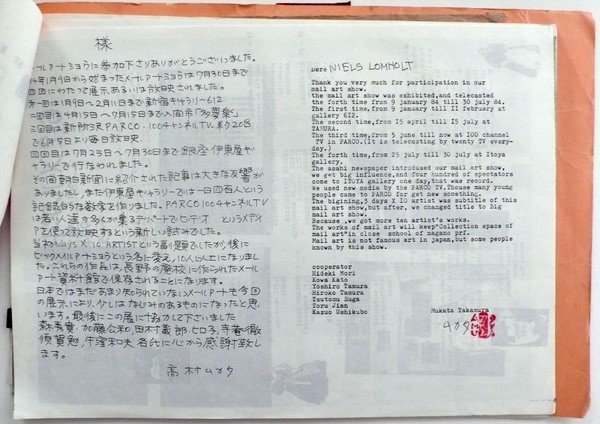 様
メールアートショウに参加下さりありがとうございました。
84年1月9日から始まったメールアートショウは7月30日まで
四回にわたって展示あるいは放映されました。
第一回は1月9日〜2月11日まで新宿ギャラリー612
二回目は4月15日〜7月15日まで入間市「多夢楽」
三回目は新所沢PARCO.100チャンネルTV.約20台
で6月5日より毎日放映.
四回目は7月25日〜7月30日まで銀座伊東屋ギ
ャラリーで行なわれました。
その間朝日新聞に紹介された記事は大きな反響が
ありましたし、また伊東屋ギャラリーでは一日四百人という
記録的な数字を作りました。PARCO.100チャンネルTV
は若い人達が多く集るデパートでビデオ というメディ
アを使って放映するという新しい試みでした。
当初 5DAYS X 10 ARTISTという副題でしたが後に
ビッグメールアートショウという名に変え、10人以上になりました。
これらの作品は、長野の廃校に作られたメール
アート資料館で保存されることになります。
日本ではまだあまり知られていないメールアートも今回
の展示により、少しはなじみのあるものになったと思
います。最後にこの展に協力して下さいました
森秀貴 加藤公和、田村義郎、ヒロ子、寺菴徹
須賀勉、牛窪和夫 各氏に心から感謝致し
ます。
高村ムカタ
Dere NIELS LOMHOLT
Thank you very much for participation in our
mail art show,
the mail art show was exhibited,and telecasted
the forth time,from 9 january 84 till 30 july 84.
The first time,from 9 january till II february at
gallery 6I2.
The second time,from I5 april till I5 july at
TAMURA.
The third time,from 5 june till now at IOO channel
TV in PARCO.(It is telecasting by twenty TV every-
day.)
The forth time,from 25 july till 30 july at Itoya
gallery.
The asahi newspaper introduced our mail art show,
we get big influence,and four hundred of spectators
come to ITOYA gallery one day,that was record.
We used new media by the PARCO TV.Thouse many young
people came to PARCO for get new something.
The bigining,5 days X IO artist was subtitle of this
mail art show,but after, we changed title to big
mail art show.
Because ,we got more ten artist's works.
The works of mail art will keep"Collection space of
mail art"in close school of nagano prf.
Mail art is not famous art in japan,but some people
knowen by this show.
cooperator
Hideki Mori
Kowa Kato
Yoshiro Tamura
Hiroko Tamura
Tsutomu Suga
Toru Jian
Kazuo Ushikubo
Mukata Takamura
ムカタ